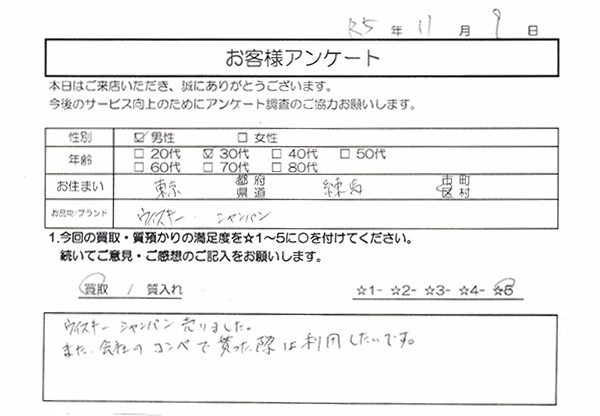 R5 年 11 月 9 日
お客様アンケート
本日はご来店いただき、誠にありがとうございます。
今後のサービス向上のためにアンケート調査のご協力お願いします。
性別 ☑ 男性 □ 女性
年齢 □ 20代 ☑ 30代 □ 40代 □ 50代
□ 60代 □ 70代 □ 80代
お住まい 東京 都府県道 練馬 市町区村
お品物/ブランド ウイスキー シャンパン
1.今回の買取・質預かりの満足度を☆1～5に○を付けてください。
続いてご意見・ご感想のご記入をお願いします。
買取 / 質入れ ☆1- ☆2- ☆3- ☆4- ☆5
ウイスキー シャンパン 売りました。
また、会社のコンペで貰った際は利用したいです。